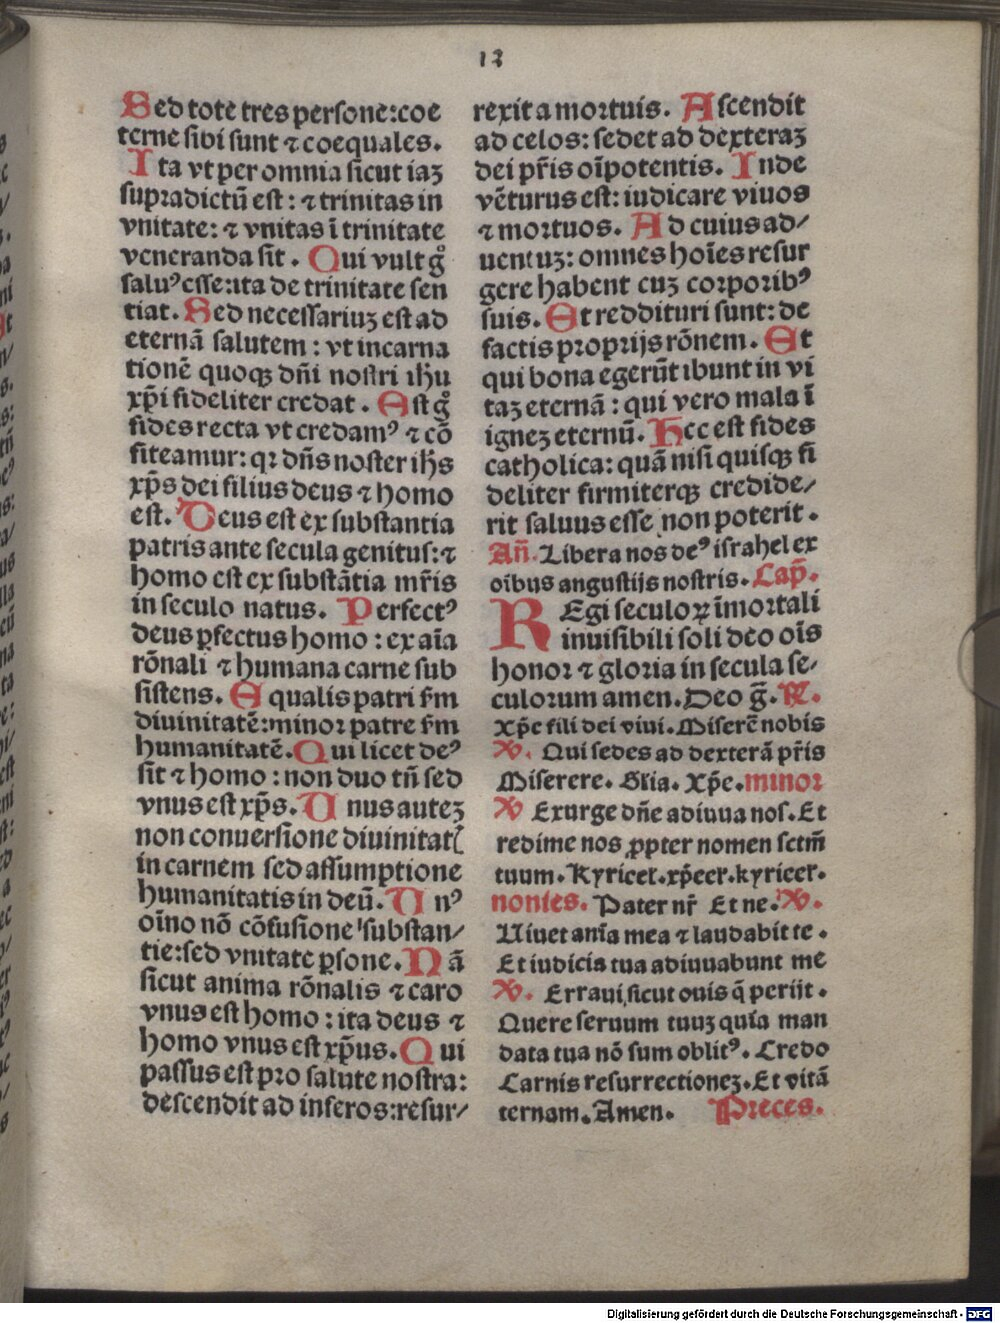 12
Sed tote tres persone: coe
terne sibi sunt ⁊ coequales.
Ita vt per omnia sicut iaꝫ
supradictū est: ⁊ trinitas in
vnitate: ⁊ vnitas ī trinitate
veneranda sit. Qui vult gͦ
saluꝰ esse: ita de trinitate sen
tiat. Sed necessariuꝫ est ad
eternā salutem: vt incarna
tionē quoqꝫ dn̄i nostri ihu
xp̄i fideliter credat. Est gͦ
fides recta vt credamꝰ ⁊ cō
fiteamur: qꝛ dn̄s noster ih̄s
xp̄s dei filius deus ⁊ homo
est. Deus est ex substantia
patris ante secula genitus: ⁊
homo est ex substātia mr̄is
in seculo natus. Perfectꝰ
deus ꝑfectus homo: ex aīa
rōnali ⁊ humana carne sub
sistens. Equalis patri ẜm
diuinitatē: minor patre ẜm
humanitatē. Qui licet deꝰ
sit ⁊ homo: non duo tn̄ sed
vnus est xp̄s. Unus auteꝫ
non conuersione diuinitatꝭ
in carnem sed assumptione
humanitatis in deū. Unꝰ
oīno nō cōfusione substan/
tie: sed vnitate ꝑsone. Nā
sicut anima rōnalis ⁊ caro
vnus est homo: ita deus ⁊
homo vnus est xp̄us. Qui
passus est pro salute nostra:
descendit ad inferos: resur/
rexit a mortuis. Ascendit
ad celos: sedet ad dexteraꝫ
dei pr̄is oīpotentis. Inde
vēturus est: iudicare viuos
⁊ mortuos. Ad cuius ad/
uentuꝫ: omnes hoīes resur
gere habent cuꝫ corporibꝰ
suis. Et reddituri sunt: de
factis proprijs rōnem. Et
qui bona egerūt ibunt in vi
taꝫ eternā: qui vero mala ī
igneꝫ eternū. Hec est fides
catholica: quā nisi quisqꝫ fi
deliter firmiterqꝫ credide/
rit saluus esse non poterit.
An̄. Libera nos deꝰ israhel ex
oībus angustijs nostris. Cap̄.
REgi seculoꝝ īmortali
inuisibili soli deo oīs
honor ⁊ gloria in secula se/
culorum amen. Deo ḡ. ℟.
Xp̄e fili dei viui. Miserē nobis
℣. Qui sedes ad dexterā pr̄is
Miserere. Glīa. Xp̄e. minor
℣ Exurge dn̄e adiuua nos. Et
redime nos ꝓpter nomen sctm̄
tuum. Kyrieel. xp̄eel. kyrieel.
nonies. Pater nr̄ Et ne. ℣.
Uiuet anīa mea ⁊ laudabit te.
Et iudicia tua adiuuabunt me
℣. Erraui sicut ouis q̄ perijt.
Quere seruum tuuꝫ quia man
data tua nō sum oblitꝰ. Credo
Carnis resurrectioneꝫ. Et vitā
ternam. Amen. Preces.
Digitalisierung gefördert durch die Deutsche Forschungsgemeinschaft - DFG